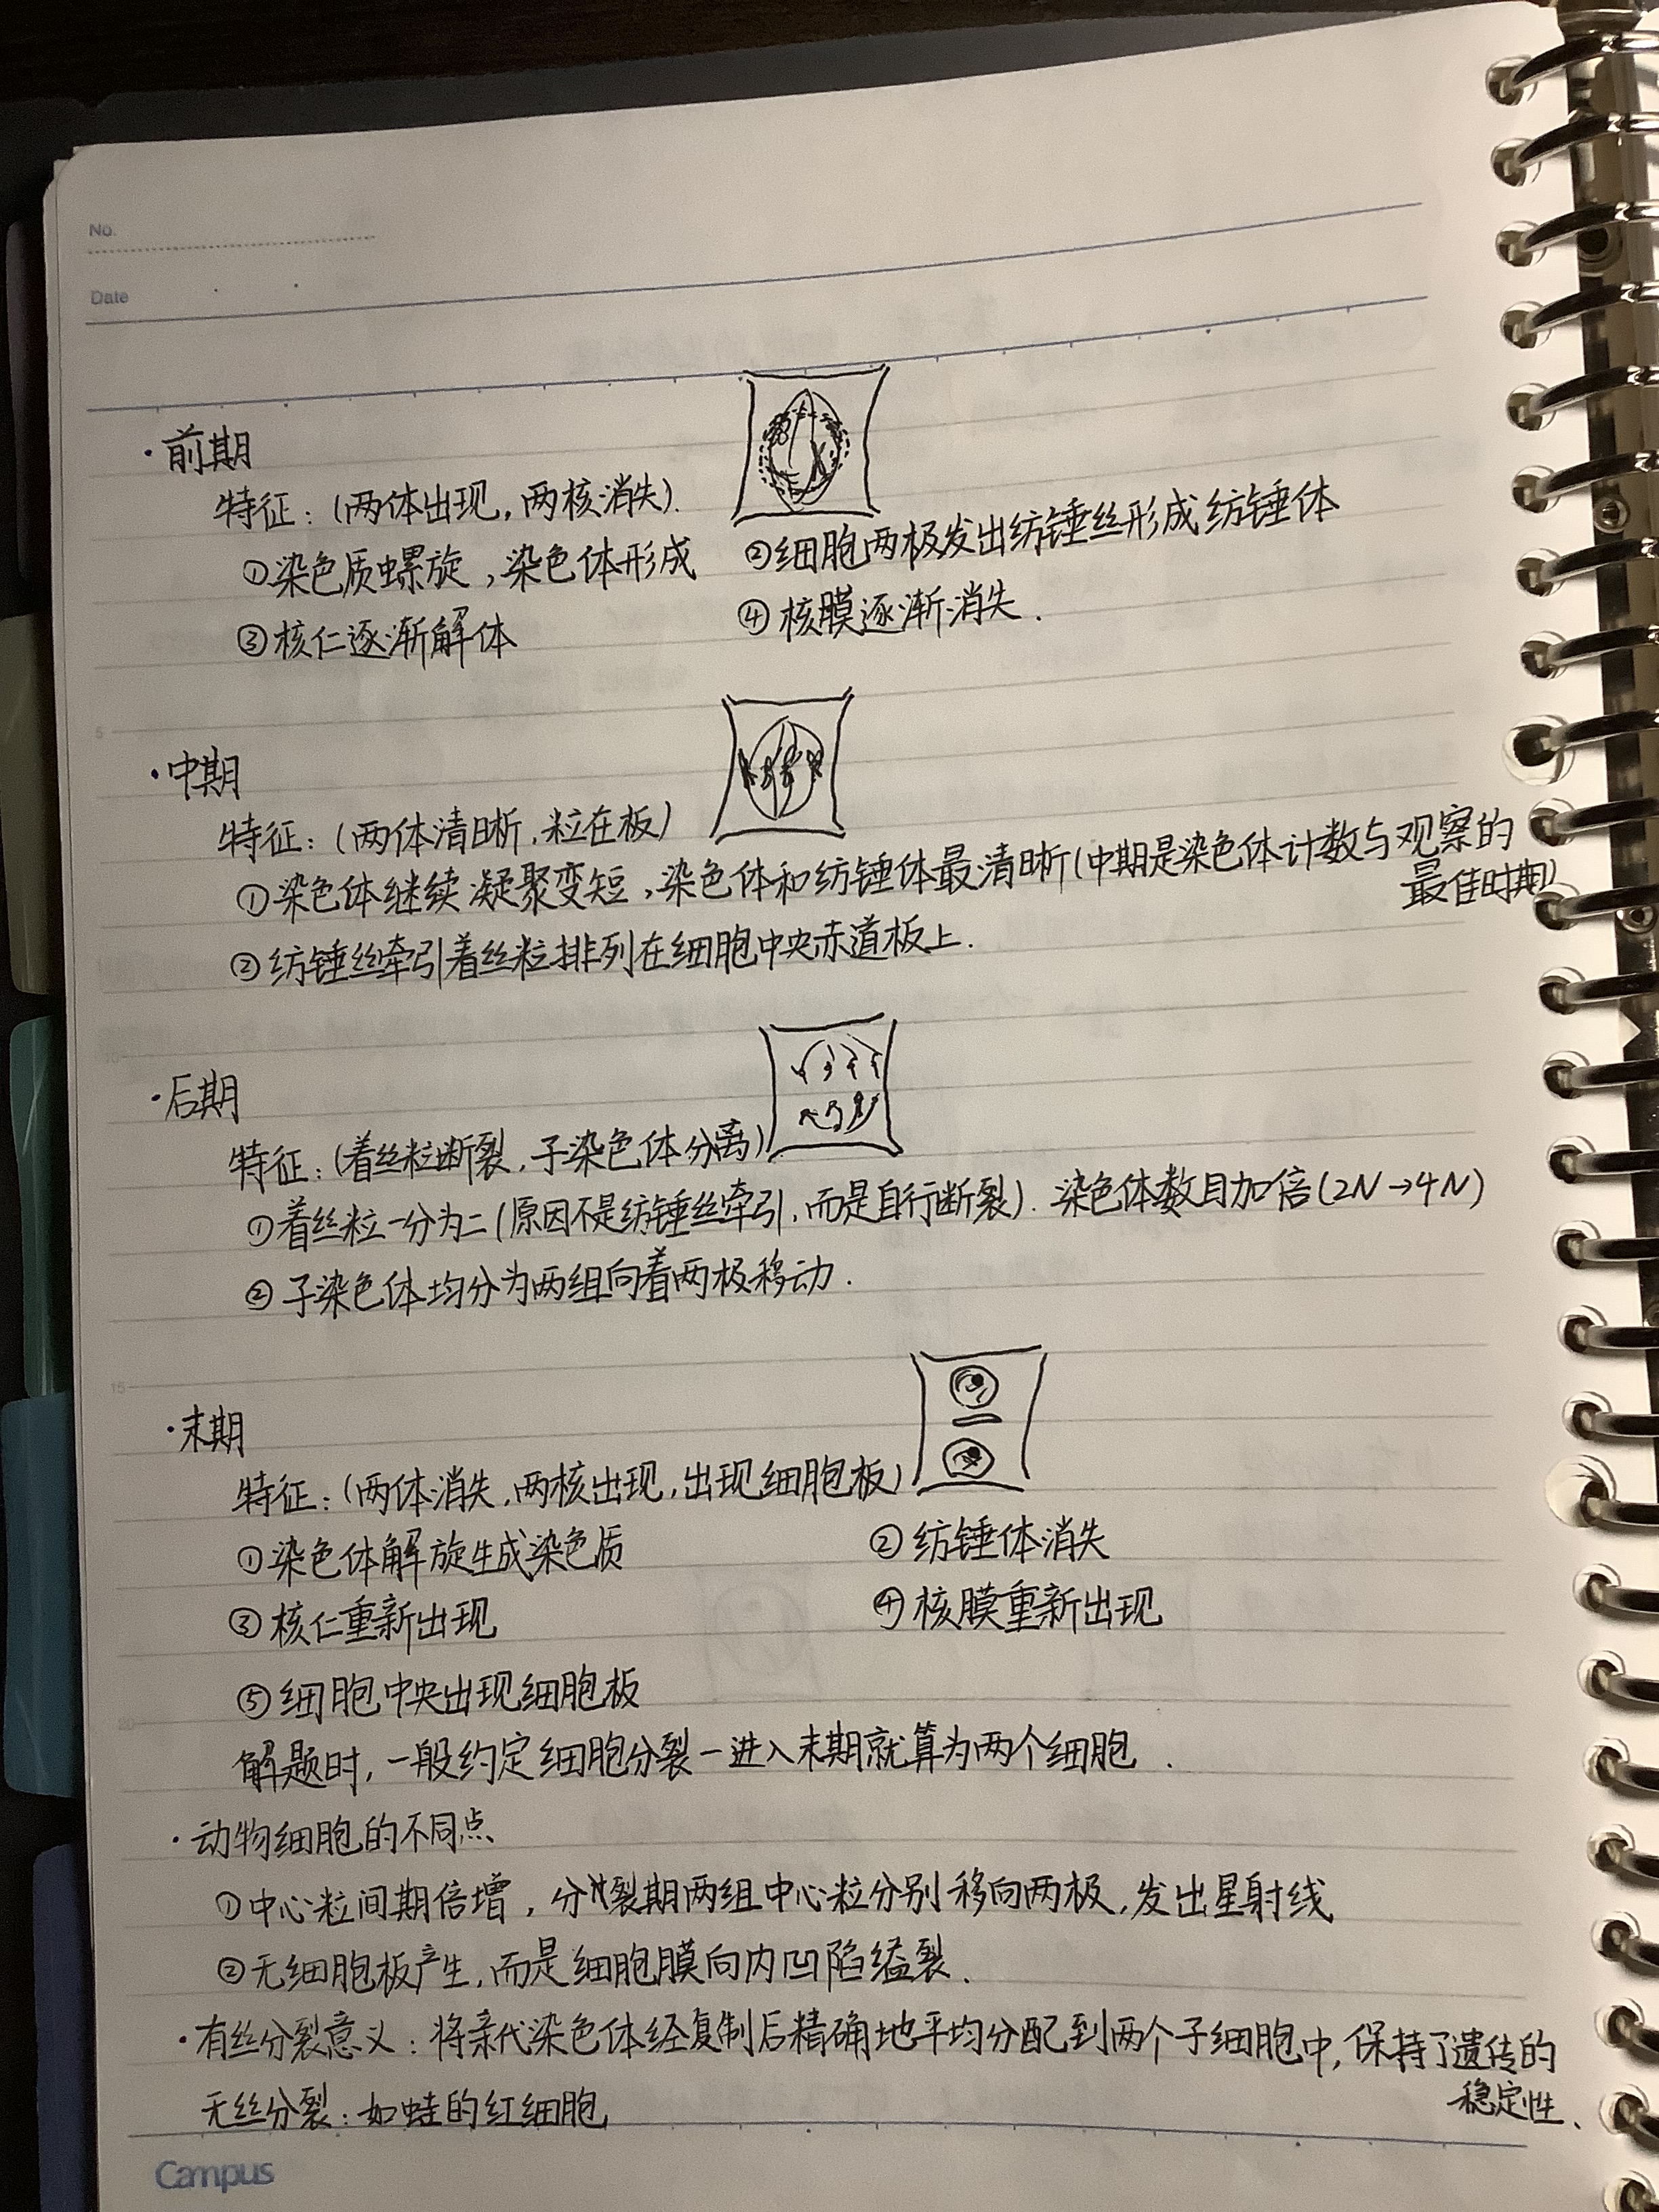 No.
Date
·前期
特征：(两体出现，两核消失).
①染色质螺旋，染色体形成 ②细胞两极发出纺锤丝形成纺锤体
③核仁逐渐解体 ④核膜逐渐消失.
5
·中期
特征：(两体清晰，粒在板)
①染色体继续凝聚变短，染色体和纺锤体最清晰(中期是染色体计数与观察的
最佳时期)
②纺锤丝牵引着丝粒排列在细胞中央赤道板上.
10
·后期
特征：(着丝粒断裂，子染色体分离)
①着丝粒一分为二(原因不是纺锤丝牵引，而是自行断裂).染色体数目加倍(2N→4N)
②子染色体均分为两组向着两极移动.
15
·末期
特征：(两体消失，两核出现，出现细胞板)
①染色体解旋生成染色质 ②纺锤体消失
③核仁重新出现 ④核膜重新出现
⑤细胞中央出现细胞板
20
解题时，一般约定细胞分裂一进入末期就算为两个细胞.
·动物细胞的不同点
①中心粒间期倍增，分裂期两组中心粒分别移向两极，发出星射线
②无细胞板产生，而是细胞膜向内凹陷缢裂.
·有丝分裂意义：将亲代染色体经复制后精确地平均分配到两个子细胞中，保持了遗传的
稳定性、
无丝分裂：如蛙的红细胞
Campus